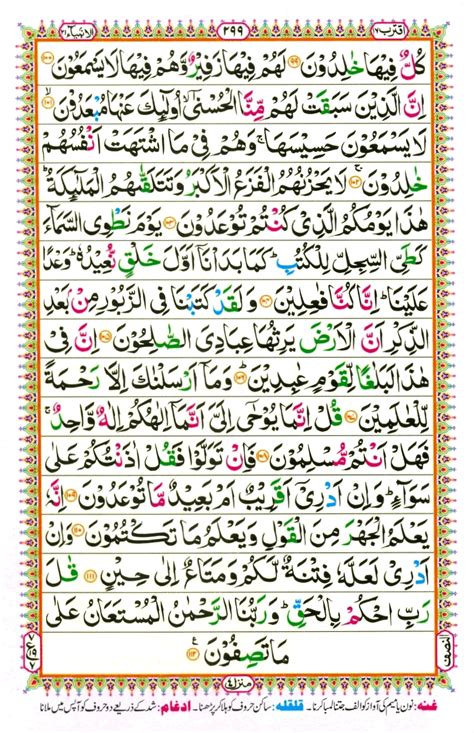 اقترب ١٧
٢٩٩
الانبیآء ٢١
كُلٌّ فِيْهَا خٰلِدُوْنَ ۝٩٩ لَهُمْ فِيْهَا زَفِيْرٌ وَّهُمْ فِيْهَا لَا يَسْمَعُوْنَ ۝١٠٠
اِنَّ الَّذِيْنَ سَبَقَتْ لَهُمْ مِّنَّا الْحُسْنٰٓى ۙ اُولٰٓئِكَ عَنْهَا مُبْعَدُوْنَ ۝١٠١
لَا يَسْمَعُوْنَ حَسِيْسَهَا ۚ وَهُمْ فِيْ مَا اشْتَهَتْ اَنْفُسُهُمْ
خٰلِدُوْنَ ۝١٠٢ لَا يَحْزُنُهُمُ الْفَزَعُ الْاَكْبَرُ وَتَتَلَقّٰىهُمُ الْمَلٰٓئِكَةُ ؕ
هٰذَا يَوْمُكُمُ الَّذِيْ كُنْتُمْ تُوْعَدُوْنَ ۝١٠٣ يَوْمَ نَطْوِي السَّمَآءَ
كَطَيِّ السِّجِلِّ لِلْكُتُبِ ؕ كَمَا بَدَاْنَآ اَوَّلَ خَلْقٍ نُّعِيْدُهٗ ؕ وَعْدًا
عَلَيْنَا ؕ اِنَّا كُنَّا فٰعِلِيْنَ ۝١٠٤ وَلَقَدْ كَتَبْنَا فِي الزَّبُوْرِ مِنْۢ بَعْدِ
الذِّكْرِ اَنَّ الْاَرْضَ يَرِثُهَا عِبَادِيَ الصّٰلِحُوْنَ ۝١٠٥ اِنَّ فِيْ
هٰذَا لَبَلٰغًا لِّقَوْمٍ عٰبِدِيْنَ ۝١٠٦ وَمَآ اَرْسَلْنٰكَ اِلَّا رَحْمَةً
لِّلْعٰلَمِيْنَ ۝١٠٧ قُلْ اِنَّمَا يُوْحٰٓى اِلَيَّ اَنَّمَآ اِلٰهُكُمْ اِلٰهٌ وَّاحِدٌ ۚ
فَهَلْ اَنْتُمْ مُّسْلِمُوْنَ ۝١٠٨ فَاِنْ تَوَلَّوْا فَقُلْ اٰذَنْتُكُمْ عَلٰى
سَوَآءٍ ؕ وَاِنْ اَدْرِيْٓ اَقَرِيْبٌ اَمْ بَعِيْدٌ مَّا تُوْعَدُوْنَ ۝١٠٩ اِنَّهٗ
يَعْلَمُ الْجَهْرَ مِنَ الْقَوْلِ وَيَعْلَمُ مَا تَكْتُمُوْنَ ۝١١٠ وَاِنْ
اَدْرِيْ لَعَلَّهٗ فِتْنَةٌ لَّكُمْ وَمَتَاعٌ اِلٰى حِيْنٍ ۝١١١ قٰلَ
رَبِّ احْكُمْ بِالْحَقِّ ؕ وَرَبُّنَا الرَّحْمٰنُ الْمُسْتَعَانُ عَلٰى
مَا تَصِفُوْنَ ۝١١٢
النصف
منزل ٤
غنه: نون یا میم کی آواز کو الف جتنا لمبا کرنا۔ قلقله: ساکن حروف کو ہلا کر پڑھنا۔ ادغام: شد کے ذریعے دو حروف کو آپس میں ملانا